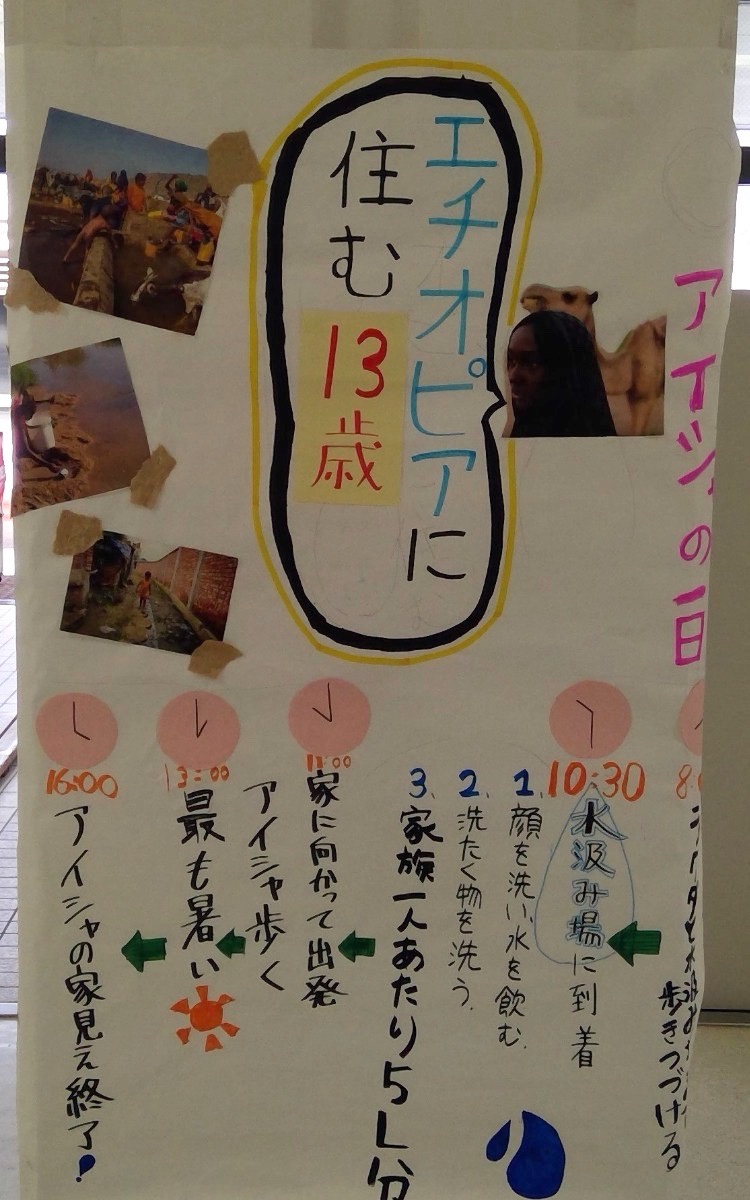 アイシャの一日
エチオピアに
住む13歳
歩きつづける
10:30
水汲み場に到着
1.顔を洗い、水を飲む.
2.洗たく物を洗う.
3.家族一人あたり5L分
11:00
家に向かって出発
アイシャ歩く
13:00
最も暑い
16:00
アイシャの家見え終了!